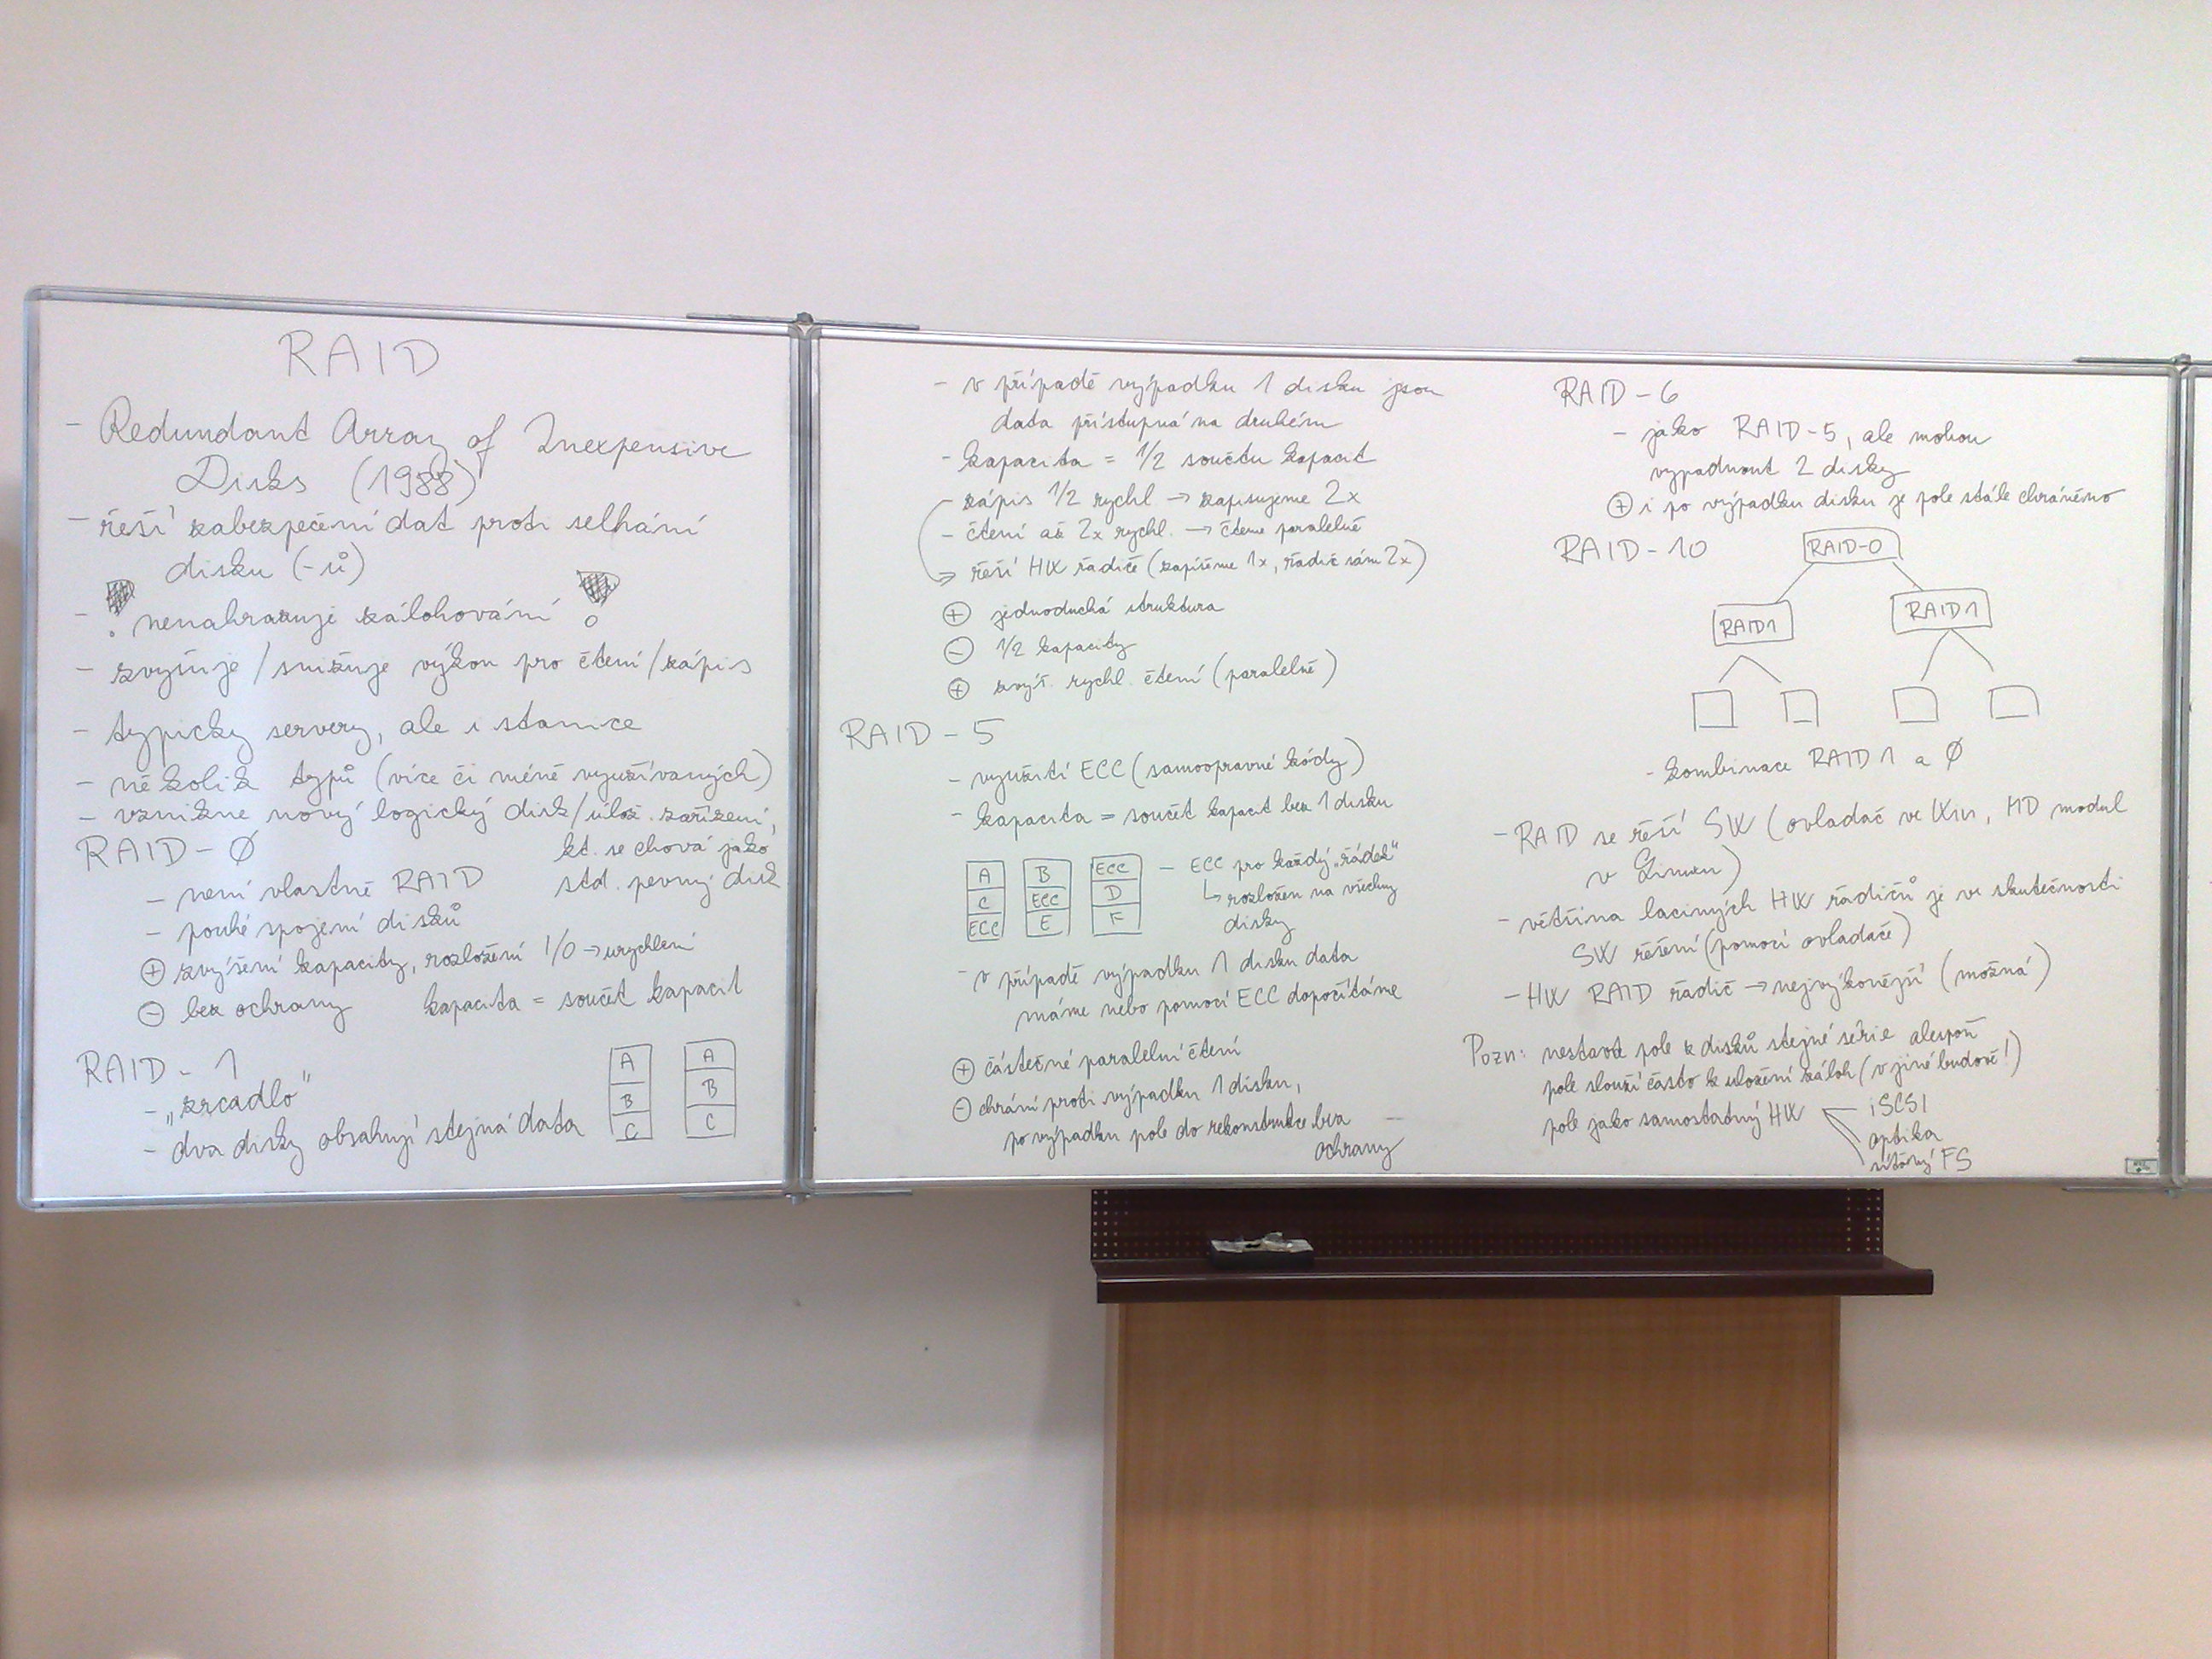 RAID
- Redundant Array of Inexpensive
Disks (1988)
- řeší zabezpečení dat proti selhání
disku (-ů)
- ! nenahrazuje zálohování !
- zvyšuje / snižuje výkon pro čtení / zápis
- typicky servery, ale i stanice
- několik typů (více či méně využívaných)
- vznikne nový logický disk / úlož. zařízení,
kt. se chová jako
std. pevný disk
RAID - 0
- není vlastně RAID
- pouhé spojení disků
+ zvýšení kapacity, rozložení I/O → urychlení
- bez ochrany kapacita = součet kapacit
RAID - 1
- „zrcadlo"
- dva disky obsahují stejná data
A A
B B
C C
- v případě výpadku 1 disku jsou
data přístupná na druhém
- kapacita = 1/2 součtu kapacit
- zápis 1/2 rychl → zapisujeme 2x
- čtení až 2x rychl. → čteme paralelně
→ řeší HW řadiče (zapíšeme 1x, řadič sám 2x)
+ jednoduchá struktura
- 1/2 kapacity
+ zvýš. rychl. čtení (paralelně)
RAID - 5
- využití ECC (samoopravné kódy)
- kapacita = součet kapacit bez 1 disku
A B ECC
C ECC D
ECC E F
- ECC pro každý „řádek"
↳ rozložen na všechny
disky
- v případě výpadku 1 disku data
máme nebo pomocí ECC dopočítáme
+ částečné paralelní čtení
- chrání proti výpadku 1 disku,
po výpadku pole do rekonstrukce bez
ochrany
RAID - 6
- jako RAID-5, ale mohou
vypadnout 2 disky
+ i po výpadku disku je pole stále chráněno
RAID - 10
RAID-0
RAID1 RAID1
- kombinace RAID 1 a 0
- RAID se řeší SW (ovladač ve Win, MD modul
v Linuxu)
- většina laciných HW řadičů je ve skutečnosti
SW řešení (pomocí ovladače)
- HW RAID řadič → nejvýkonější (možná)
Pozn: nestavět pole z disků stejné série alespoň
pole slouží často k uložení záloh (v jiné budově!)
pole jako samostatný HW
iSCSI
optika
síťový FS